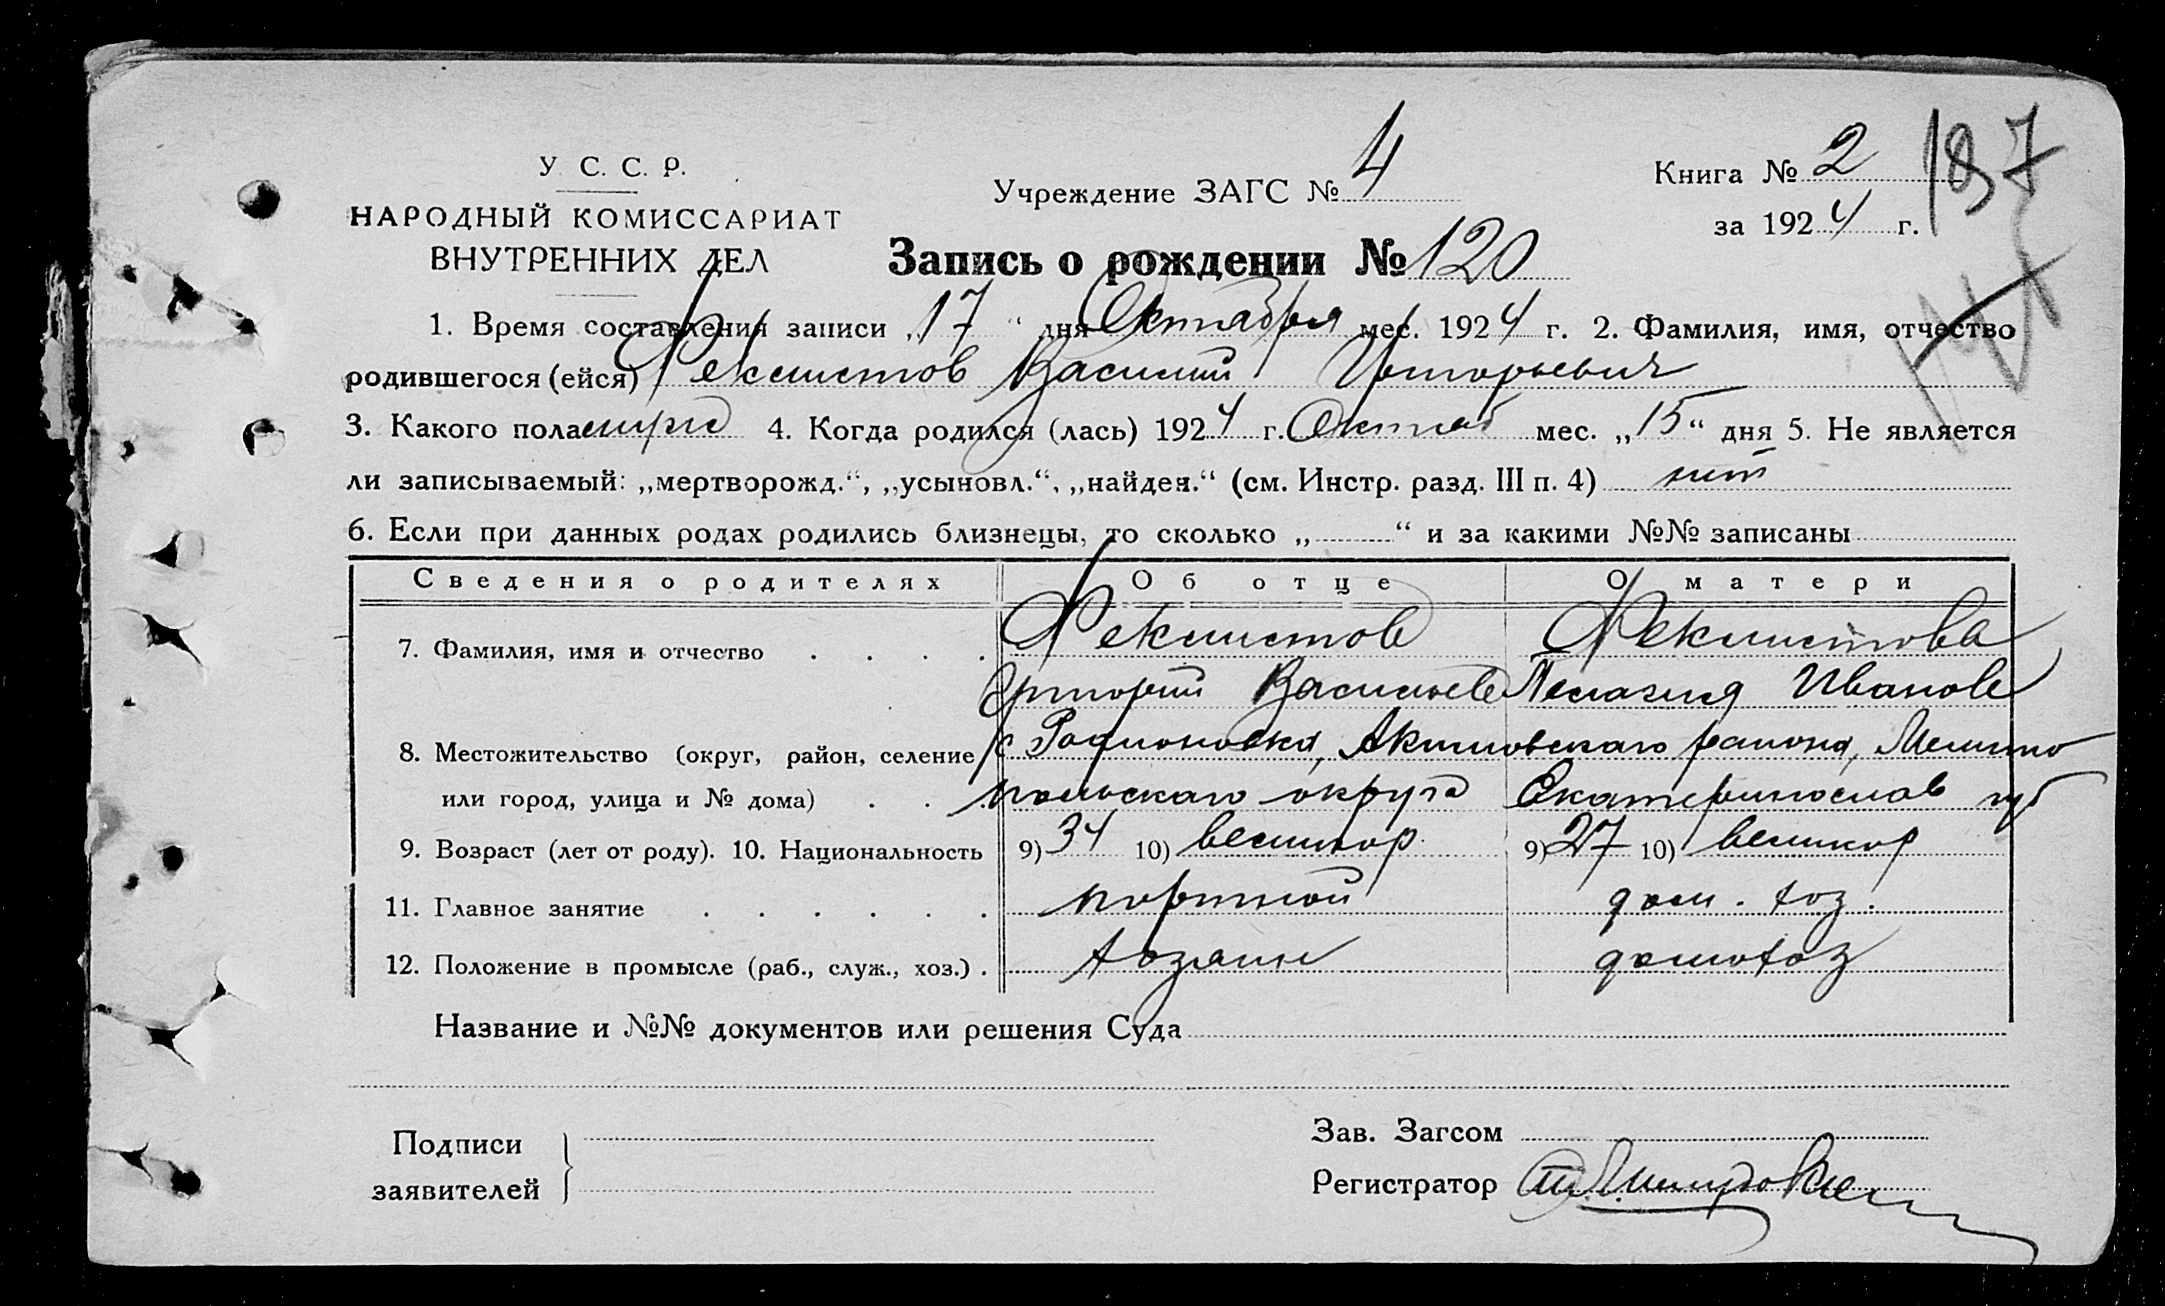 У. С. С. Р.
НАРОДНЫЙ КОМИССАРИАТ
ВНУТРЕННИХ ДЕЛ
Учреждение ЗАГС № 4
Книга № 2
187
за 1924 г.
Запись о рождении № 120
1. Время составления записи „17“ дня Октября мес. 1924 г. 2. Фамилия, имя, отчество
родившегося (ейся) Феклистов Василий Григорьевич
3. Какого пола 4. Когда родился (лась) 1924 г. Октяб мес. „15“ дня 5. Не является
ли записываемый: „мертворожд.“, „усыновл.“, „найден.“ (см. Инстр. разд. III п. 4) нет
6. Если при данных родах родились близнецы, то сколько „ “ и за какими №№ записаны
Сведения о родителях Об отце О матери
7. Фамилия, имя и отчество Феклистов Феклистова
Григорий Васильев Пелагия Иванов
8. Местожительство (округ, район, селение с Родионовка, Акимовскаго района, Мелито
или город, улица и № дома) польскаго округа Екатеринослав губ
9. Возраст (лет от роду). 10. Национальность 9) 34 10) великор 9) 27 10) великор
11. Главное занятие портной дом. хоз.
12. Положение в промысле (раб., служ., хоз.) хозяин домохоз
Название и №№ документов или решения Суда
Подписи
заявителей
Зав. Загсом
Регистратор